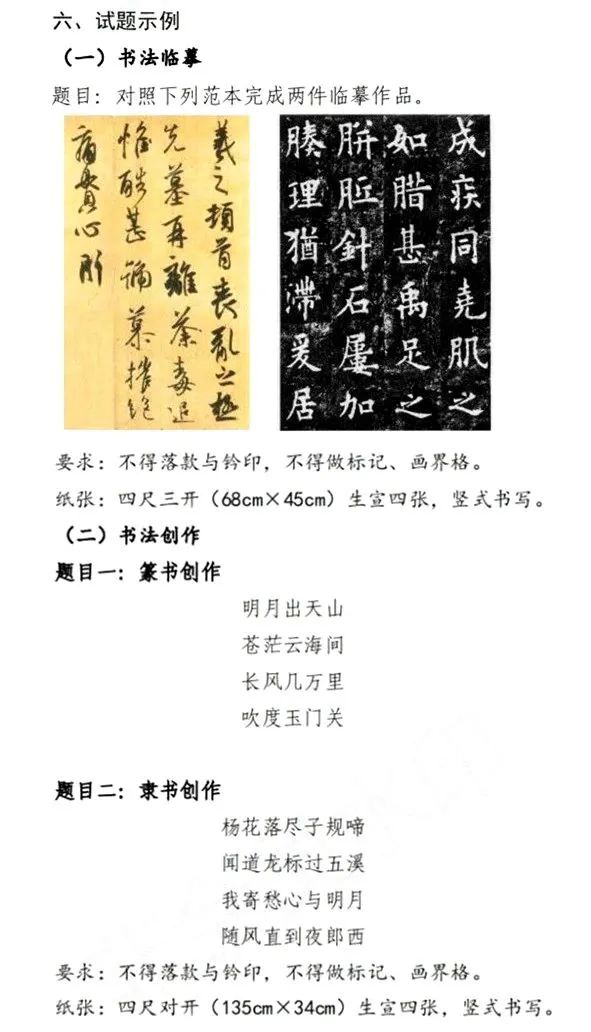 六、试题示例
（一）书法临摹
题目：对照下列范本完成两件临摹作品。
羲之頓首喪亂之極
先墓再離荼毒追
惟酷甚號慕摧絶
痛貫心肝
成疾同堯肌之
如腊甚禹足之
胼胝針石屢加
腠理猶滯爰居
要求：不得落款与钤印，不得做标记、画界格。
纸张：四尺三开（68cm×45cm）生宣四张，竖式书写。
（二）书法创作
题目一：篆书创作
明月出天山
苍茫云海间
长风几万里
吹度玉门关
题目二：隶书创作
杨花落尽子规啼
闻道龙标过五溪
我寄愁心与明月
随风直到夜郎西
要求：不得落款与钤印，不得做标记、画界格。
纸张：四尺对开（135cm×34cm）生宣四张，竖式书写。